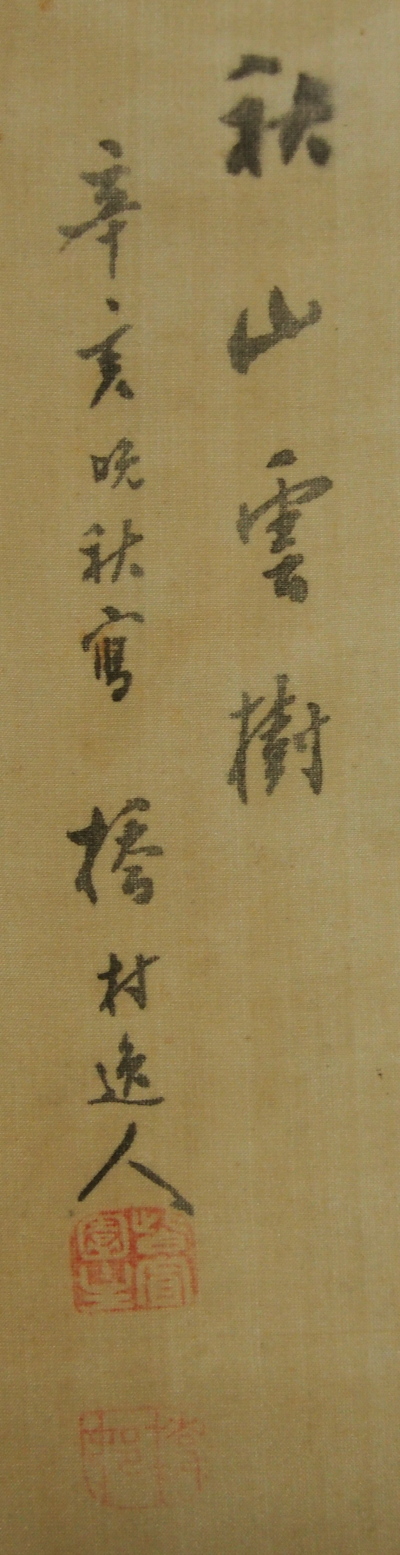 秋山雲樹
辛亥晩秋寫 橋村逸人